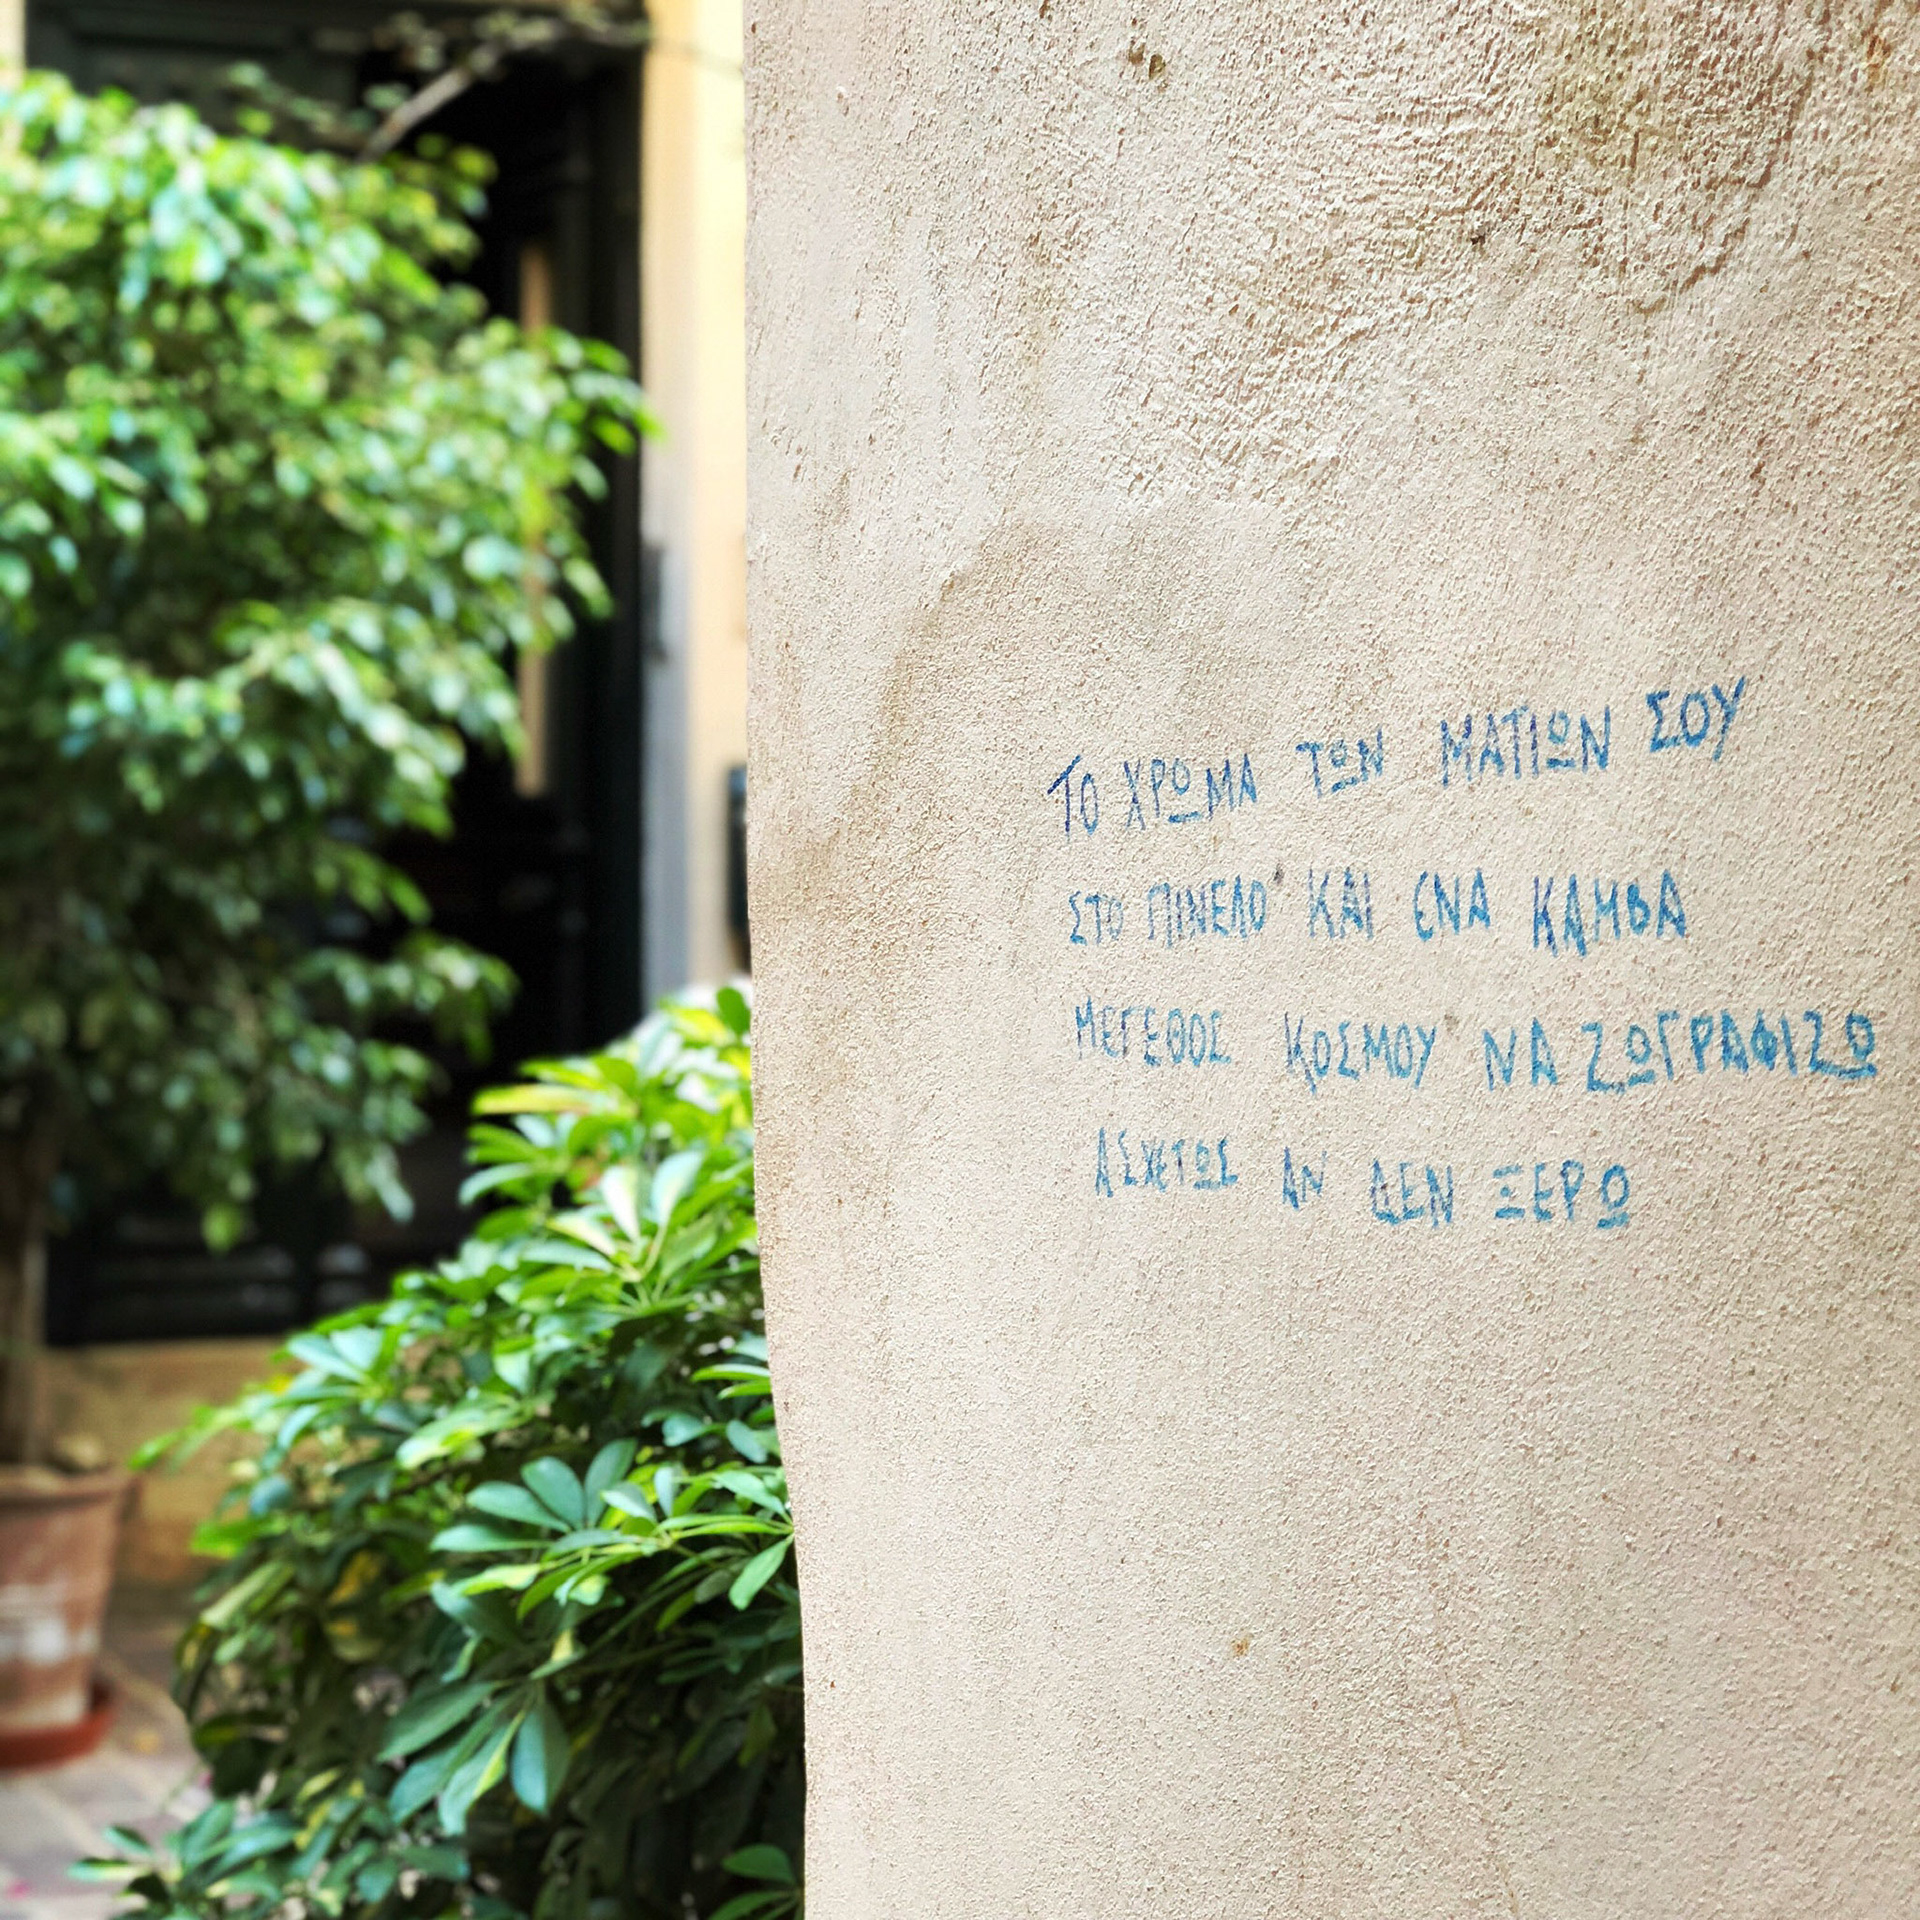 ΤΟ ΧΡΩΜΑ ΤΩΝ ΜΑΤΙΩΝ ΣΟΥ
ΣΤΟ ΠΙΝΕΛΟ ΚΑΙ ΕΝΑ ΚΑΜΒΑ
ΜΕΓΕΘΟΣ ΚΟΣΜΟΥ ΝΑ ΖΩΓΡΑΦΙΖΩ
ΑΣΧΕΤΩΣ ΑΝ ΔΕΝ ΞΕΡΩ